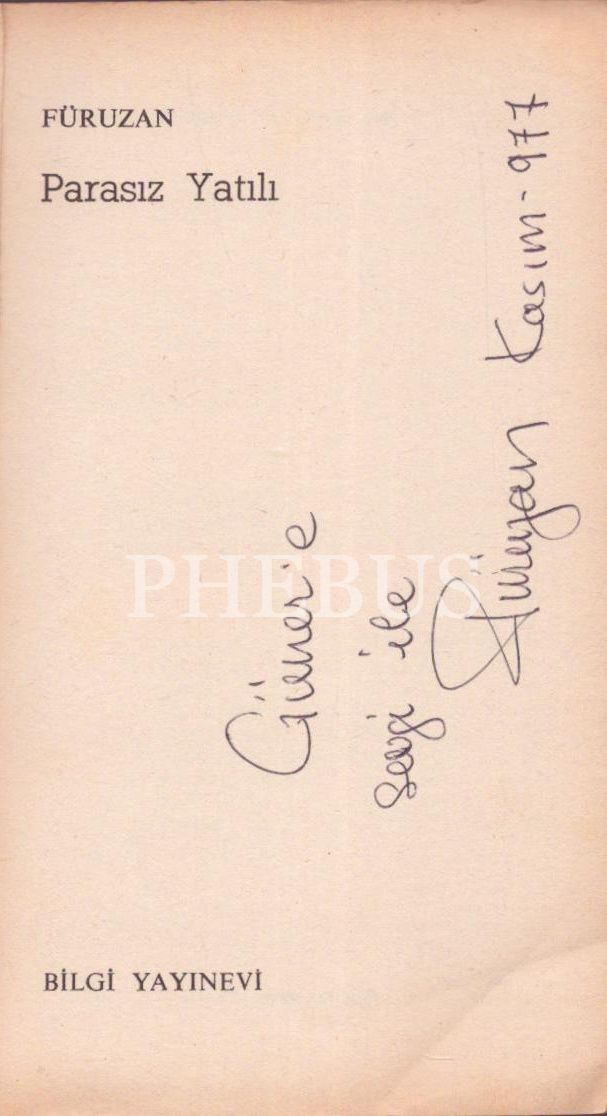 FÜRUZAN
Parasız Yatılı
Güner'e
sevgi ile
Füruzan Kasım-977
PHEBUS
BİLGİ YAYINEVİ